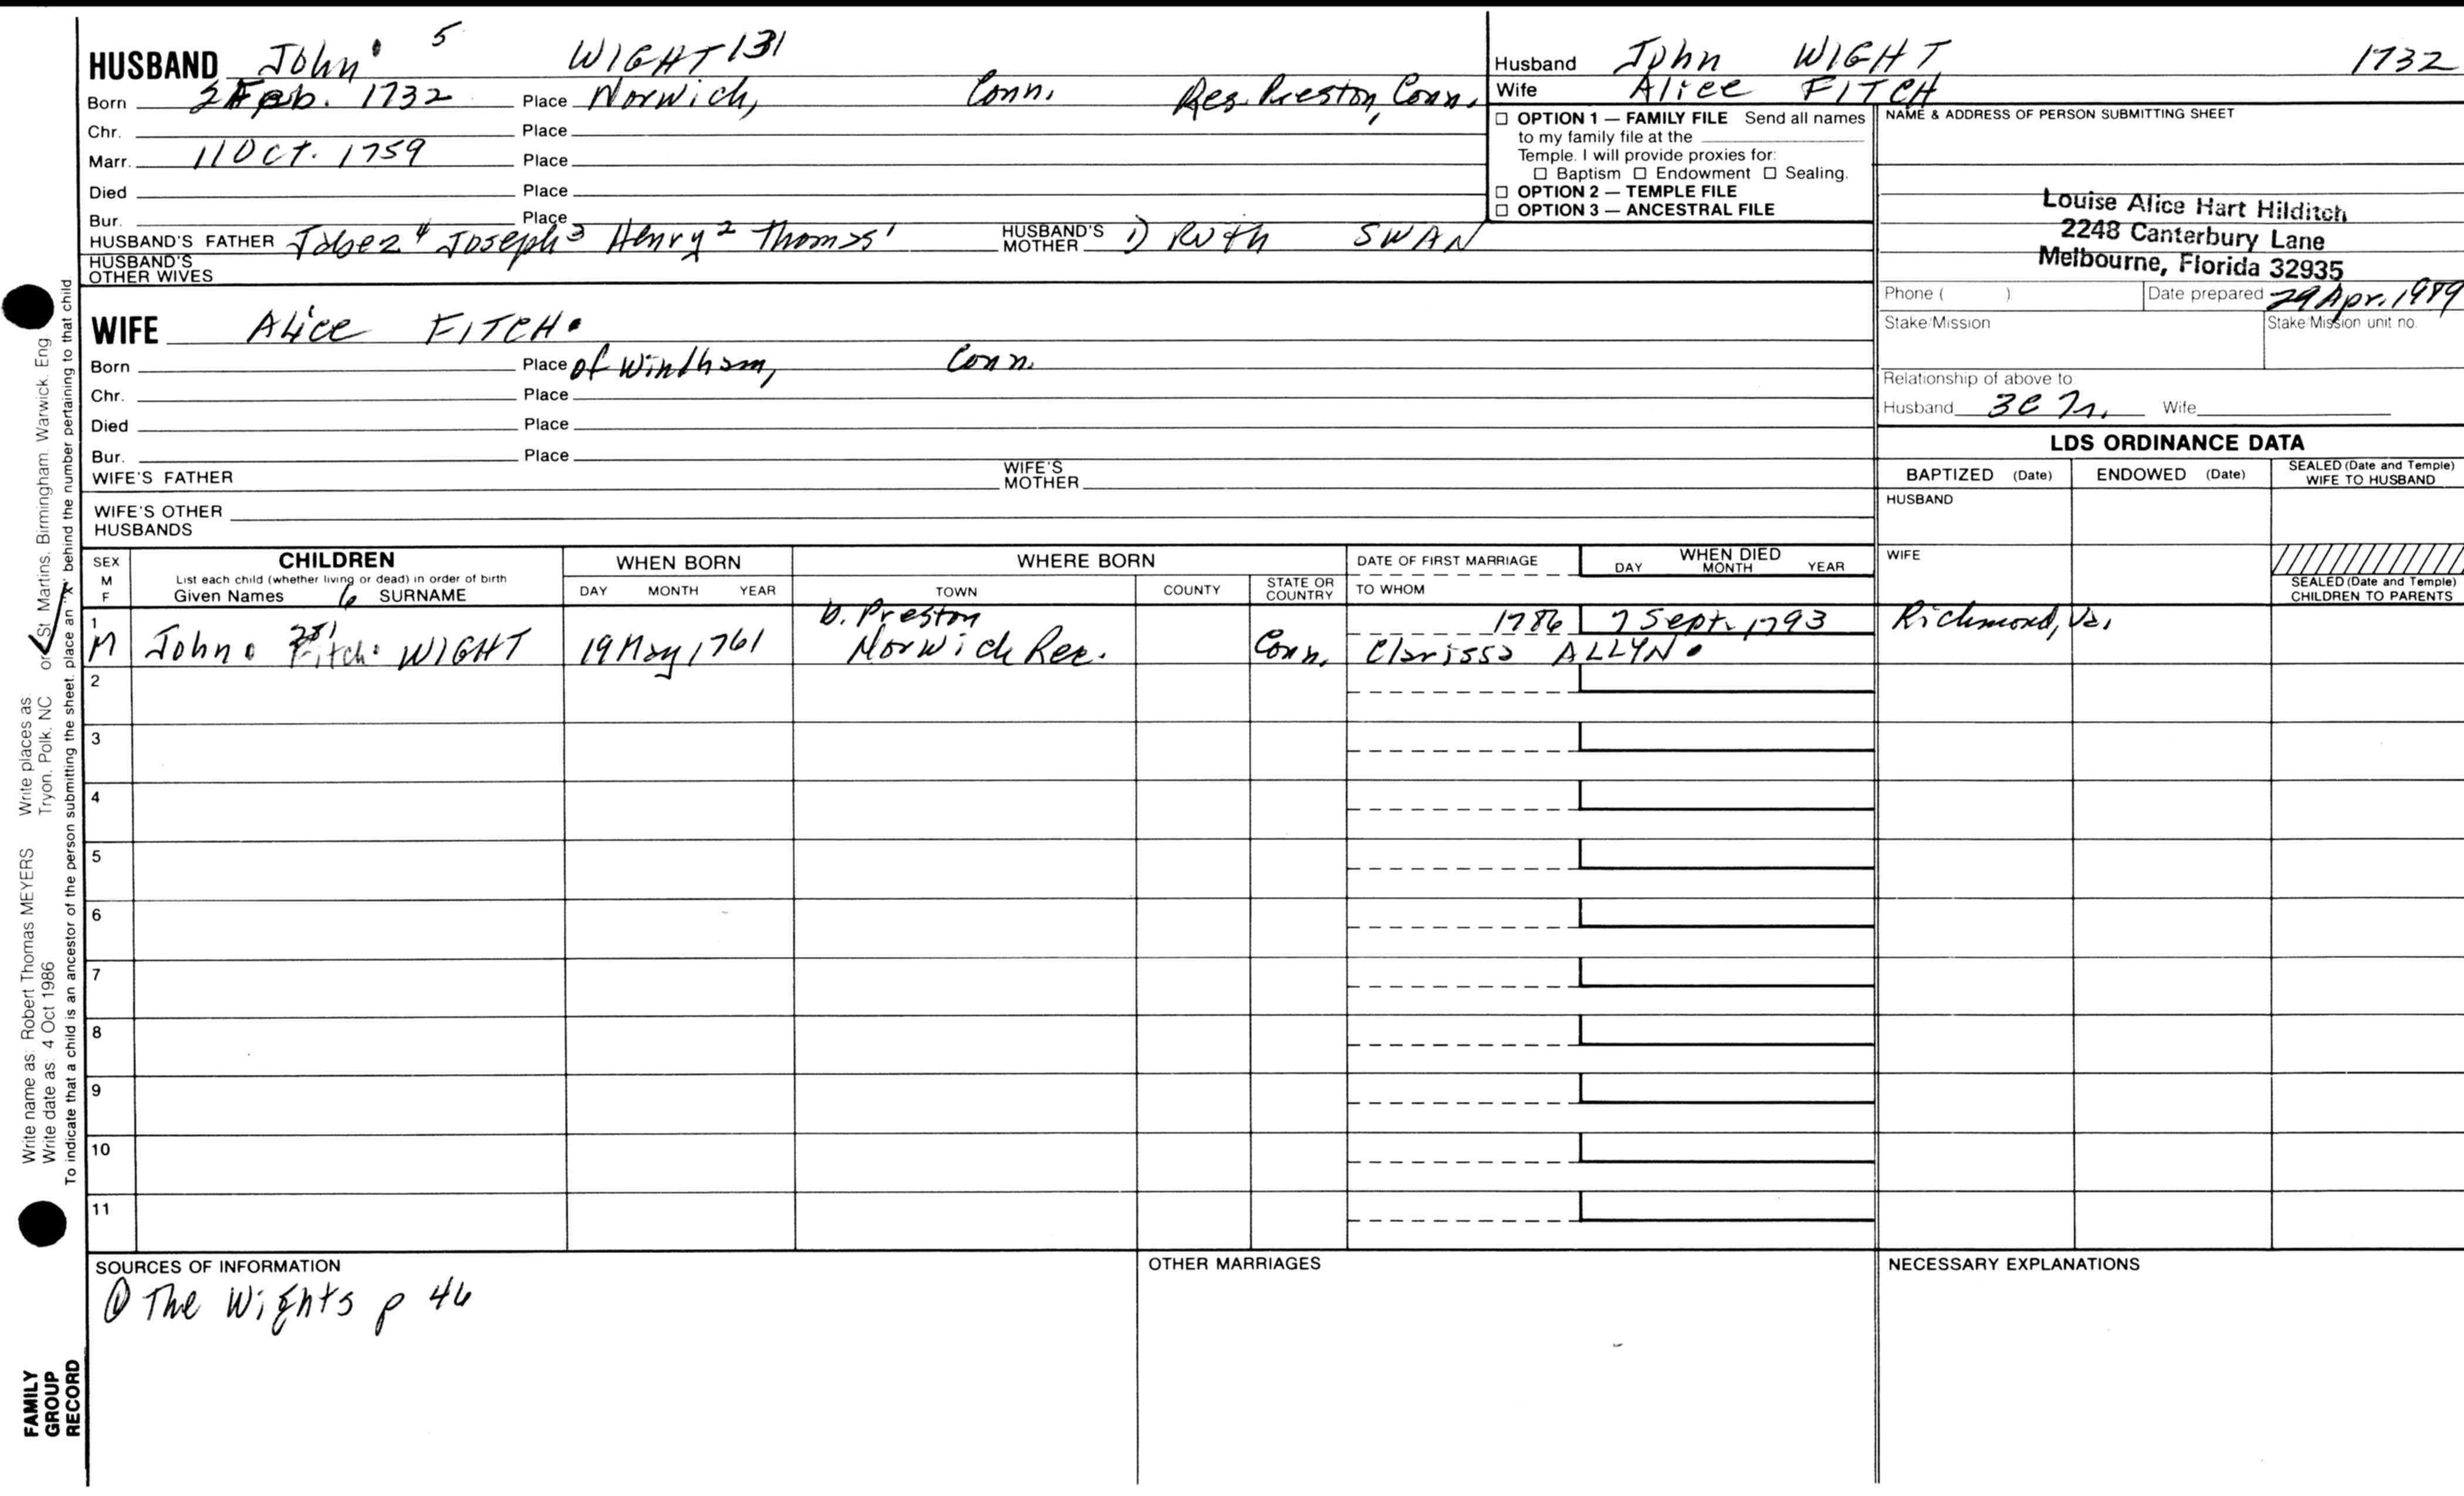 HUSBAND John 5 WIGHT 131
Born 2 Feb. 1732 Place Norwich, Conn. Res. Preston, Conn.
Chr. Place
Marr. 11 Oct. 1759 Place
Died Place
Bur. Place
HUSBAND'S FATHER Jabez 4 Joseph 3 Henry 2 Thomas 1 HUSBAND'S MOTHER 1) Ruth SWAN
HUSBAND'S OTHER WIVES
WIFE Alice FITCH
Born Place of Windham, Conn.
Chr. Place
Died Place
Bur. Place
WIFE'S FATHER WIFE'S MOTHER
WIFE'S OTHER HUSBANDS
Husband John WIGHT 1732
Wife Alice FITCH
☐ OPTION 1 — FAMILY FILE Send all names
to my family file at the
Temple. I will provide proxies for:
☐ Baptism ☐ Endowment ☐ Sealing.
☐ OPTION 2 — TEMPLE FILE
☐ OPTION 3 — ANCESTRAL FILE
NAME & ADDRESS OF PERSON SUBMITTING SHEET
Louise Alice Hart Hilditch
2248 Canterbury Lane
Melbourne, Florida 32935
Phone ( ) Date prepared 29 Apr. 1989
Stake/Mission Stake/Mission unit no.
Relationship of above to
Husband 3C 7r. Wife
LDS ORDINANCE DATA
BAPTIZED (Date) ENDOWED (Date) SEALED (Date and Temple) WIFE TO HUSBAND
HUSBAND
WIFE
SEALED (Date and Temple) CHILDREN TO PARENTS
SEX M F
CHILDREN
List each child (whether living or dead) in order of birth
Given Names 6 SURNAME
WHEN BORN
DAY MONTH YEAR
WHERE BORN
TOWN COUNTY STATE OR COUNTRY
DATE OF FIRST MARRIAGE
TO WHOM
WHEN DIED
DAY MONTH YEAR
1 b. Preston 1786 7 Sept. 1793 Richmond, Va.
M John Fitch 281 WIGHT 19 May 1761 Norwich Rec. Conn. Clarissa ALLYN
2
3
4
5
6
7
8
9
10
11
SOURCES OF INFORMATION
① The Wights p 46
OTHER MARRIAGES
NECESSARY EXPLANATIONS
Write name as: Robert Thomas MEYERS Write places as:
Write date as: 4 Oct 1986 Tryon, Polk, NC or St. Martins, Birmingham, Warwick, Eng
To indicate that a child is an ancestor of the person submitting the sheet, place an "X" behind the number pertaining to that child
FAMILY
GROUP
RECORD